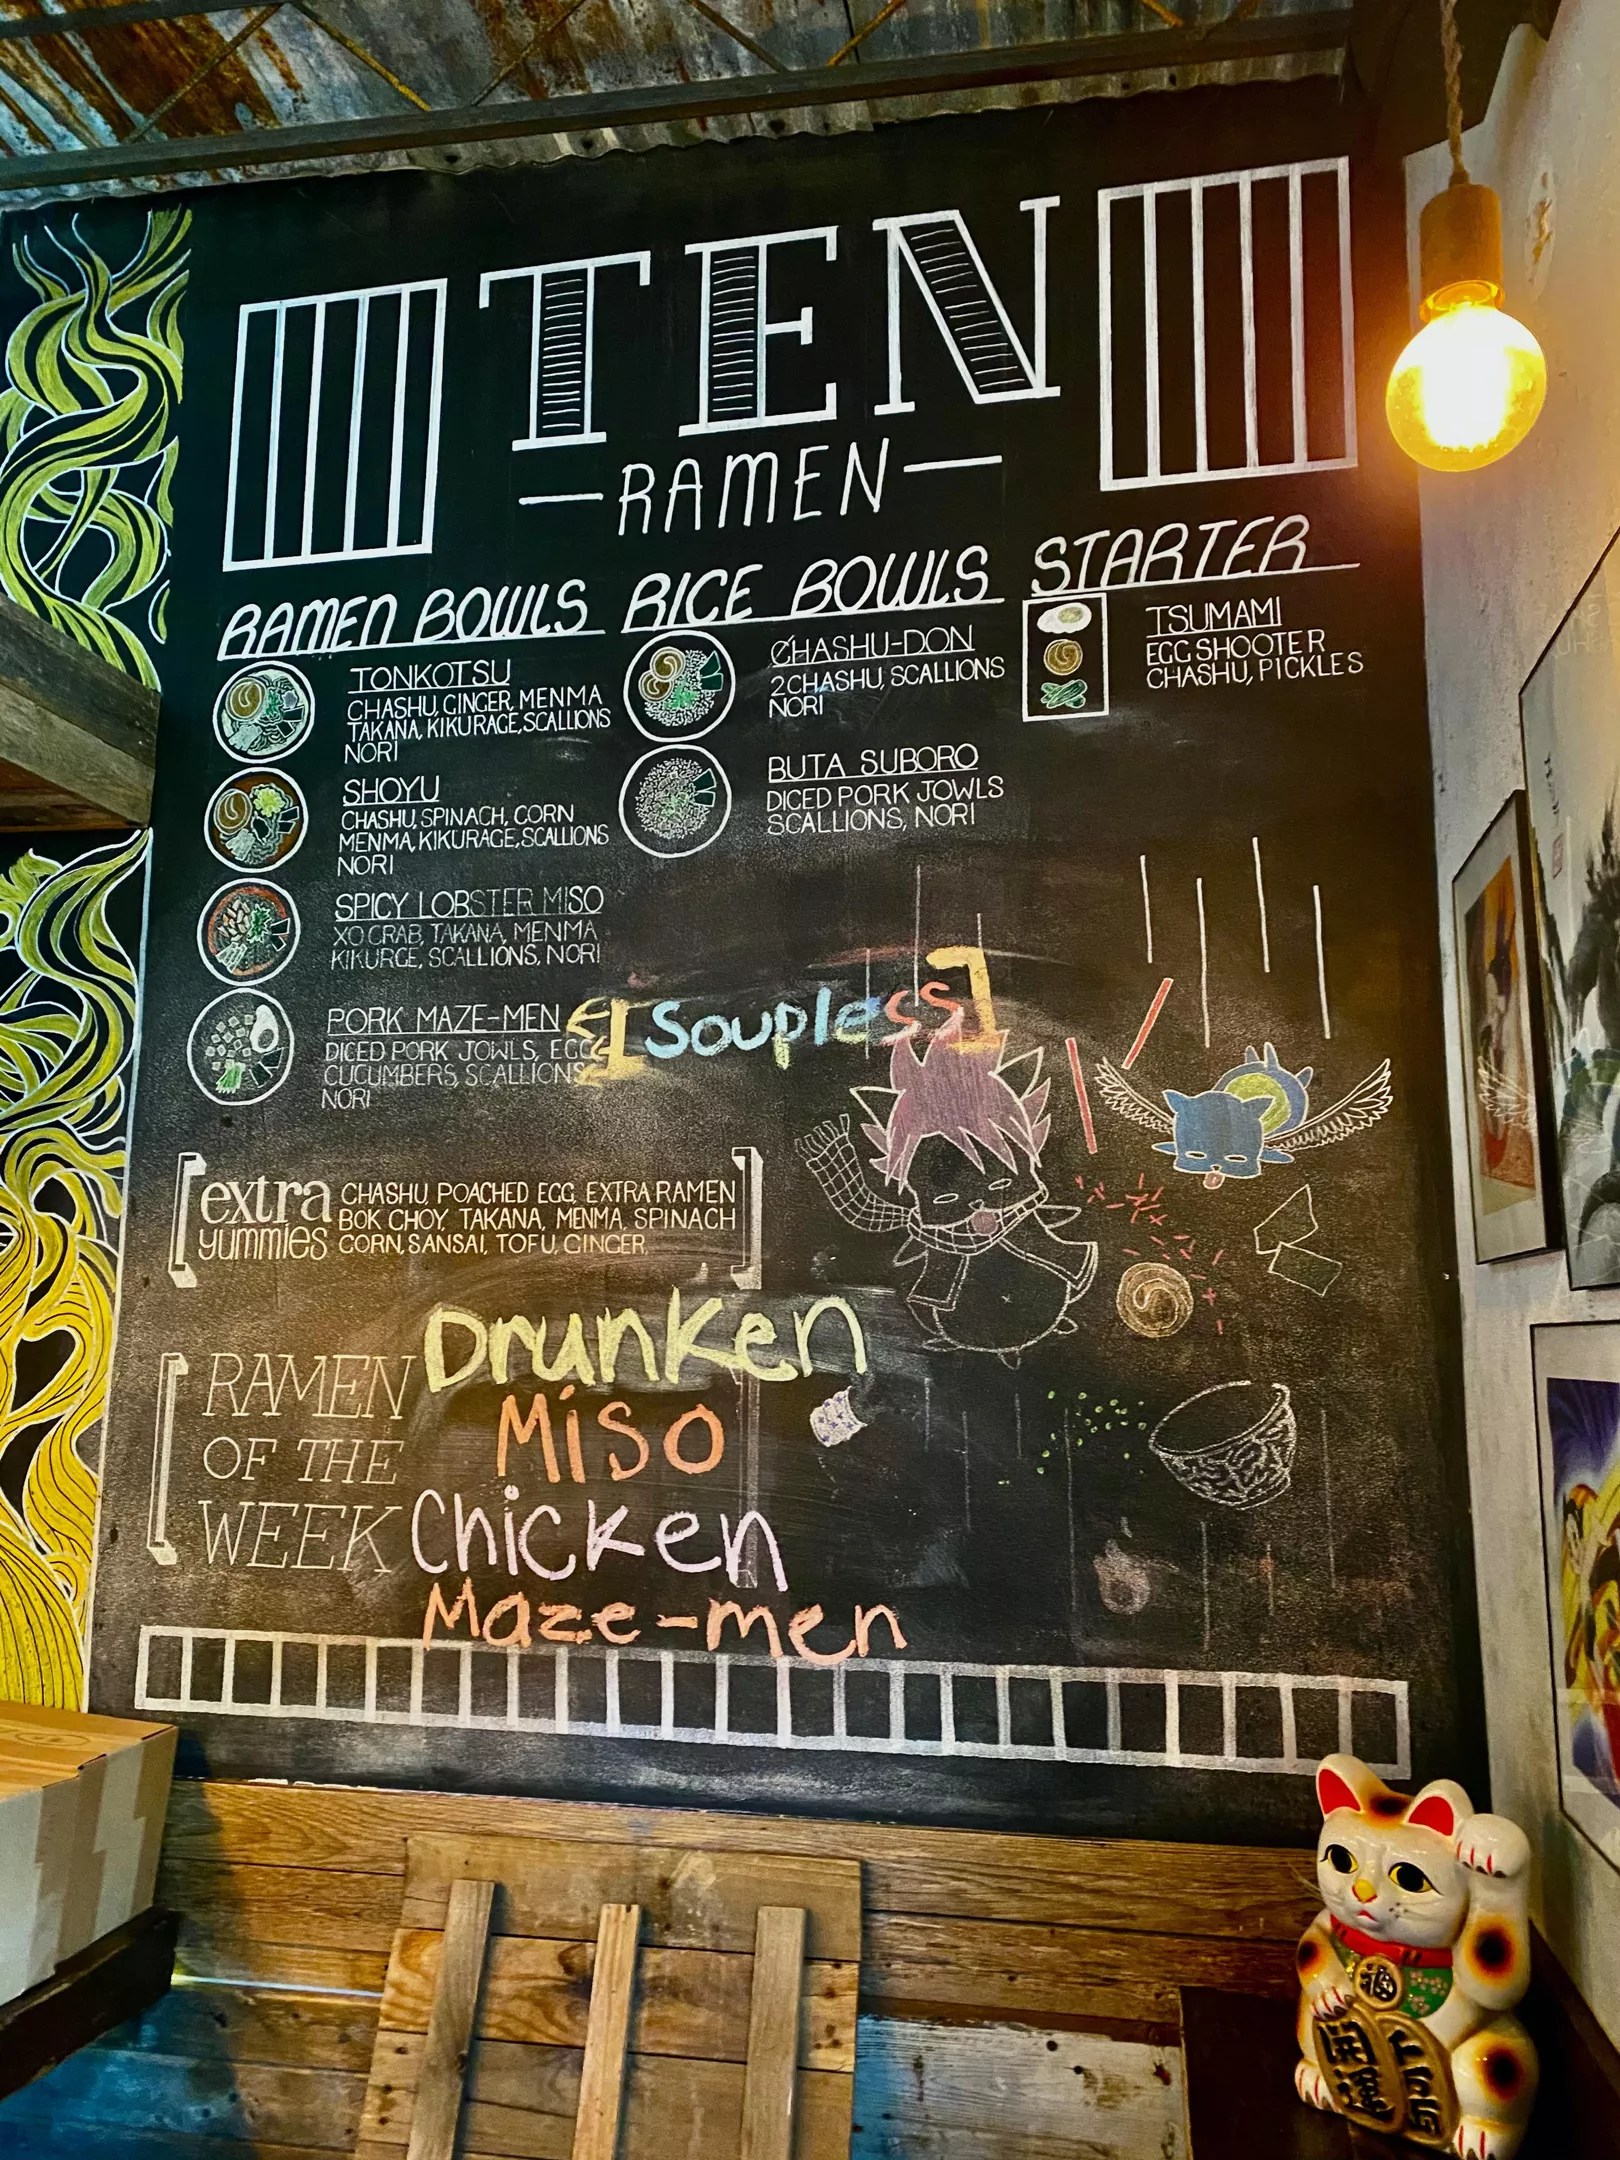 TEN
RAMEN
RAMEN BOWLS
TONKOTSU
CHASHU, GINGER, MENMA
TAKANA, KIKURAGE, SCALLIONS
NORI
SHOYU
CHASHU, SPINACH, CORN
MENMA, KIKURAGE, SCALLIONS
NORI
SPICY LOBSTER MISO
XO CRAB, TAKANA, MENMA
KIKURGE, SCALLIONS, NORI
PORK MAZE-MEN
[Soupless]
DICED PORK JOWLS, EGG
CUCUMBERS, SCALLIONS
NORI
RICE BOWLS
CHASHU-DON
2 CHASHU, SCALLIONS
NORI
BUTA SUBORO
DICED PORK JOWLS
SCALLIONS, NORI
STARTER
TSUMAMI
EGG SHOOTER
CHASHU, PICKLES
extra
yummies
CHASHU, POACHED EGG, EXTRA RAMEN
BOK CHOY, TAKANA, MENMA, SPINACH
CORN, SANSAI, TOFU, GINGER,
RAMEN
OF THE
WEEK
Drunken
Miso
Chicken
Maze-men